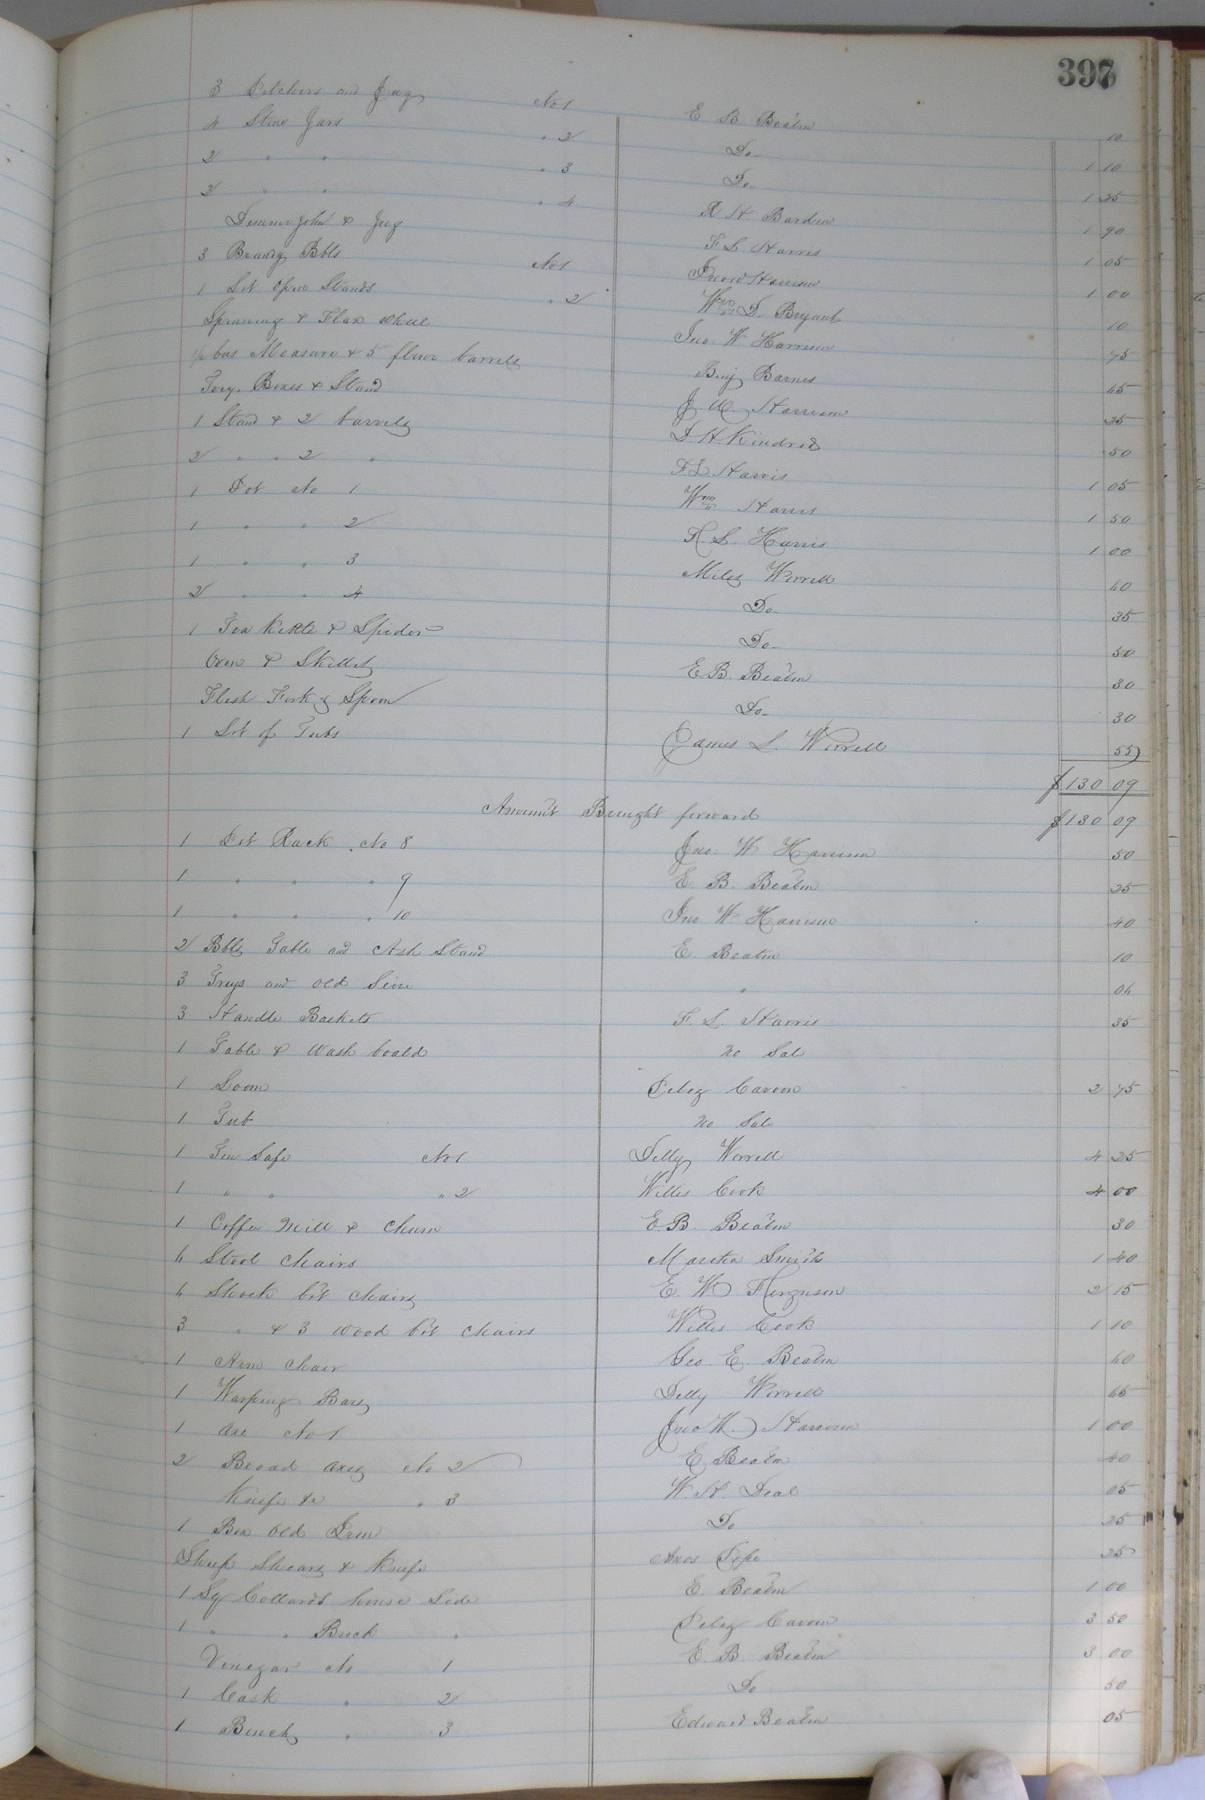 397
3 Pitchers and Jug No 1 E B Beaton 10
4 Stone Jars " 2 Do 1 10
2 " " " 3 Do 1 25
2 " " " 4 R H Barden 1 90
Demmejohn & Jug F. L. Harris 1 05
3 Brandy Bbls No 1 Jno W Harrison 1 00
1 Lot open Stands " 2 Wm D. Bryant 10
Spinning & Flax wheel Jno. W Harrison 75
½ bus Measure & 5 flour barrels Benj Barnes 45
Boxes & Stand J W Harrison 25
1 Stand & 2 barrels D H. Kindred 50
2 " " 2 " F L Harris 1 05
1 Pot No 1 Wm Harris 1 50
1 " " 2 F. L. Harris 1 00
1 " " 3 Miles Worrell 40
2 " " 4 Do 35
1 Tea Kettle & Spider Do 50
Oven & Skillets E B. Beaton 30
Flesh Fork & Spoon Do 30
1 Lot of Tubs James L. Worrell 55
$130 09
Amount Brought forward $130 09
1 Pot Rack No 8 Jno. W Harrison 50
1 " " " 9 E. B. Beaton 25
1 " " " 10 Jno W Harrison 40
2 Bbls Table and Ash Stand E Beaton 10
3 Trays and old " 04
3 Handle Baskets F. L. Harris 35
1 Table & Wash board no Sale
1 Loom Peleg 2 75
1 Tub no Sale
1 Tin Safe No 1 Worrell 4 25
1 " " " 2 Willis Cook 4 00
1 Coffee Mill & Churn E B. Beaton 30
6 Stool chairs Martha Smith 1 40
6 Shuck bot chairs E W Ferguson 2 15
3 " & 3 wood bot chairs Willis Cook 1 10
1 Arm chair Geo. E. Beaton 40
1 Warping Bars Worrell 45
1 axe No 1 Jno W. Harrison 1 00
2 Broad axes No 2 E Beaton 40
Knife &c " 3 W. H. Deal 05
1 Box old Iron Do 25
Sheep Shears & Knife Amos Pope 25
1 Sq Collards house Side E. Beaton 1 00
1 " " Back " Peleg 3 50
Vinegar No 1 E. B. Beaton 3 00
1 Cask " 2 Do 50
1 Bench " 3 Edward Beaton 05